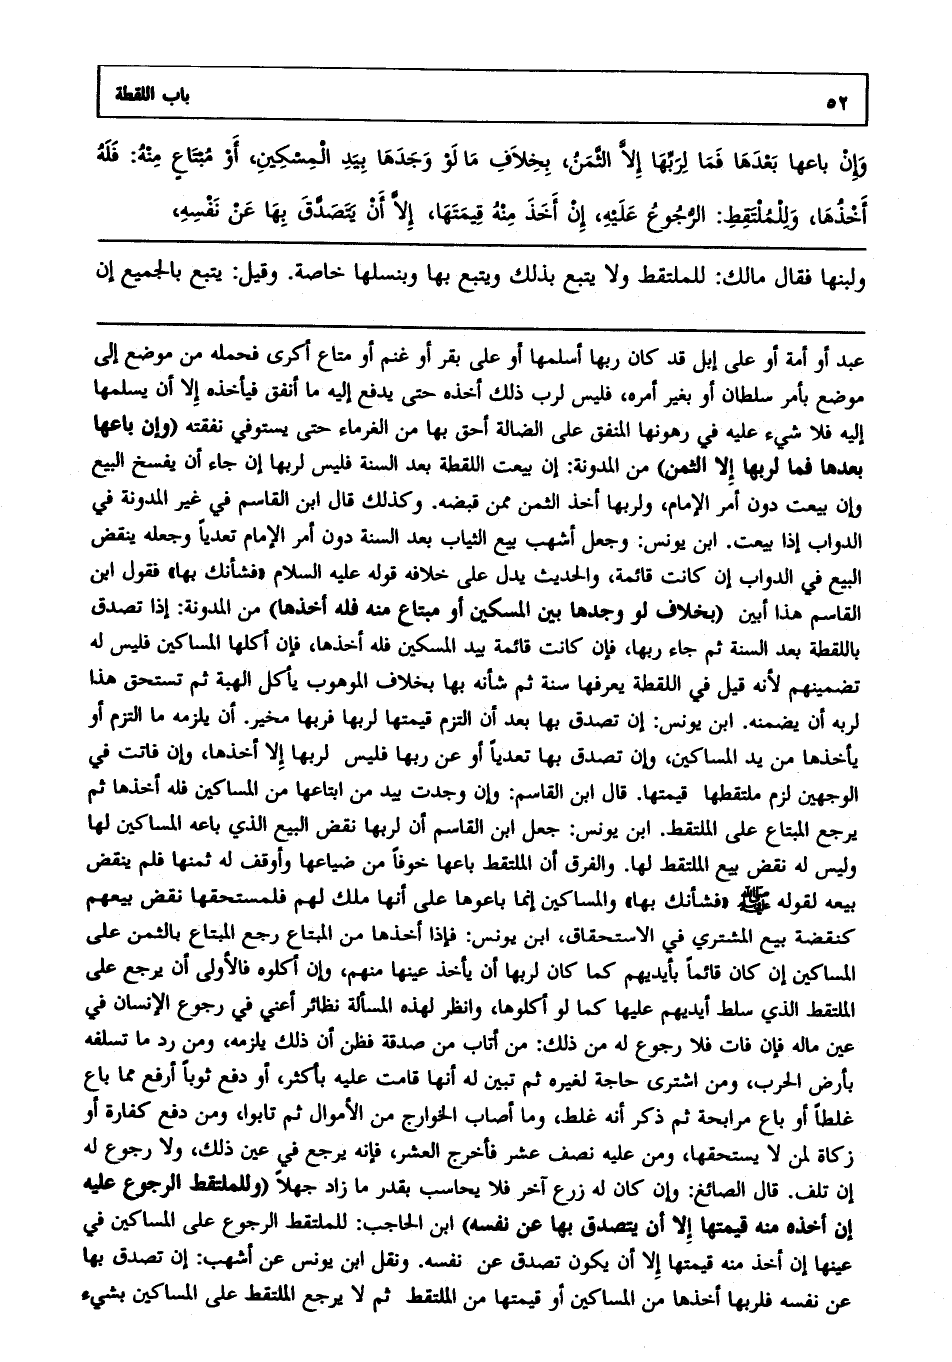 ٥٢ باب اللقطة
وَإِنْ باعها بَعْدَهَا فَمَا لِرَبِّهَا إِلاَّ الثَّمَنُ، بِخِلاَفِ مَا لَوْ وَجَدَهَا بِيَدِ الْمِسْكِينِ، أَوْ مُبْتَاعٍ مِنْهُ: فَلَهُ
أَخْذُهَا، وَلِلْمُلْتَقِطِ: الرُّجُوعُ عَلَيْهِ، إِنْ أَخَذَ مِنْهُ قِيمَتَهَا، إِلاَّ أَنْ يَتَصَدَّقَ بِهَا عَنْ نَفْسِهِ،
ولبنها فقال مالك: للملتقط ولا يتبع بذلك ويتبع بها وبنسلها خاصة. وقيل: يتبع بالجميع إن
عبد أو أمة أو على إبل قد كان ربها أسلمها أو على بقر أو غنم أو متاع أكرى فحمله من موضع إلى
موضع بأمر سلطان أو بغير أمره، فليس لرب ذلك أخذه حتى يدفع إليه ما أنفق فيأخذه إلا أن يسلمها
إليه فلا شيء عليه في رهونها المنفق على الضالة أحق بها من الغرماء حتى يستوفي نفقته (وإن باعها
بعدها فما لربها إلا الثمن) من المدونة: إن بيعت اللقطة بعد السنة فليس لربها إن جاء أن يفسخ البيع
وإن بيعت دون أمر الإمام، ولربها أخذ الثمن ممن قبضه. وكذلك قال ابن القاسم في غير المدونة في
الدواب إذا بيعت. ابن يونس: وجعل أشهب بيع الثياب بعد السنة دون أمر الإمام تعدياً وجعله ينقض
البيع في الدواب إن كانت قائمة، والحديث يدل على خلافه قوله عليه السلام «فشأنك بها» فقول ابن
القاسم هذا أبين (بخلاف لو وجدها بين المسكين أو مبتاع منه فله أخذها) من المدونة: إذا تصدق
باللقطة بعد السنة ثم جاء ربها، فإن كانت قائمة بيد المسكين فله أخذها، فإن أكلها المساكين فليس له
تضمينهم لأنه قيل في اللقطة يعرفها سنة ثم شأنه بها بخلاف الموهوب يأكل الهبة ثم تستحق هذا
لربه أن يضمنه. ابن يونس: إن تصدق بها بعد أن التزم قيمتها لربها فربها مخير. أن يلزمه ما التزم أو
يأخذها من يد المساكين، وإن تصدق بها تعدياً أو عن ربها فليس لربها إلا أخذها، وإن فاتت في
الوجهين لزم ملتقطها قيمتها. قال ابن القاسم: وإن وجدت بيد من ابتاعها من المساكين فله أخذها ثم
يرجع المبتاع على الملتقط. ابن يونس: جعل ابن القاسم أن لربها نقض البيع الذي باعه المساكين لها
وليس له نقض بيع الملتقط لها. والفرق أن الملتقط باعها خوفاً من ضياعها وأوقف له ثمنها فلم ينقض
بيعه لقوله ﷺ «فشأنك بها» والمساكين إنما باعوها على أنها ملك لهم فلمستحقها نقض بيعهم
كنقضة بيع المشتري في الاستحقاق، ابن يونس: فإذا أخذها من المبتاع رجع المبتاع بالثمن على
المساكين إن كان قائماً بأيديهم كما كان لربها أن يأخذ عينها منهم، وإن أكلوه فالأولى أن يرجع على
الملتقط الذي سلط أيديهم عليها كما لو أكلوها، وانظر لهذه المسألة نظائر أعني في رجوع الإنسان في
عين ماله فإن فات فلا رجوع له من ذلك: من أثاب من صدقة فظن أن ذلك يلزمه، ومن رد ما تسلفه
بأرض الحرب، ومن اشترى حاجة لغيره ثم تبين له أنها قامت عليه بأكثر، أو دفع ثوباً أرفع مما باع
غلطاً أو باع مرابحة ثم ذكر أنه غلط، وما أصاب الخوارج من الأموال ثم تابوا، ومن دفع كفارة أو
زكاة لمن لا يستحقها، ومن عليه نصف عشر فأخرج العشر، فإنه يرجع في عين ذلك، ولا رجوع له
إن تلف. قال الصائغ: وإن كان له زرع آخر فلا يحاسب بقدر ما زاد جهلاً (وللملتقط الرجوع عليه
إن أخذه منه قيمتها إلا أن يتصدق بها عن نفسه) ابن الحاجب: للملتقط الرجوع على المساكين في
عينها إن أخذ منه قيمتها إلا أن يكون تصدق عن نفسه. ونقل ابن يونس عن أشهب: إن تصدق بها
عن نفسه فلربها أخذها من المساكين أو قيمتها من الملتقط ثم لا يرجع الملتقط على المساكين بشيء